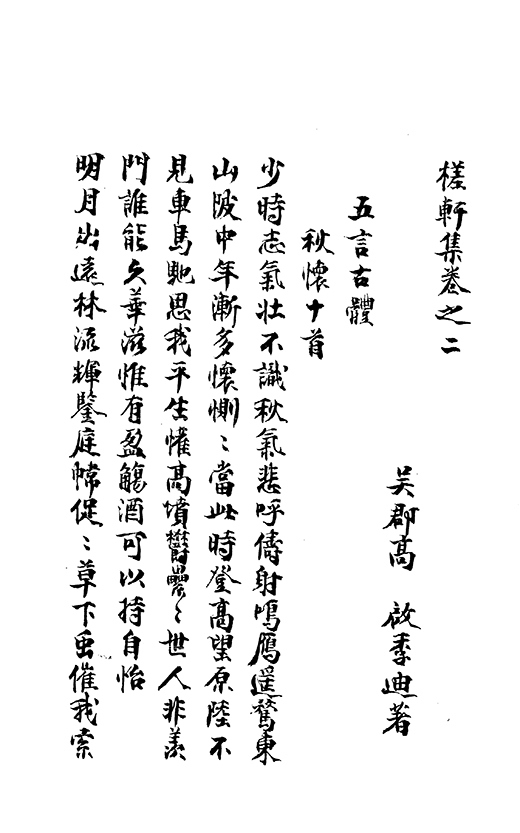 槎軒集卷之二
吳郡高 啟季迪著
五言古體
秋懷十首
少時志氣壯不識秋氣悲呼儔射鳴鴈遥鶩東
山陂中年漸多懷惻〻當此時登高望原陸不
見車馬馳思我平生懽高墳鬱纍〻世人非羨
門誰能久華滋惟有盈觴酒可以持自怡
明月出遠林流輝鑒庭幃促〻草下虫催我索